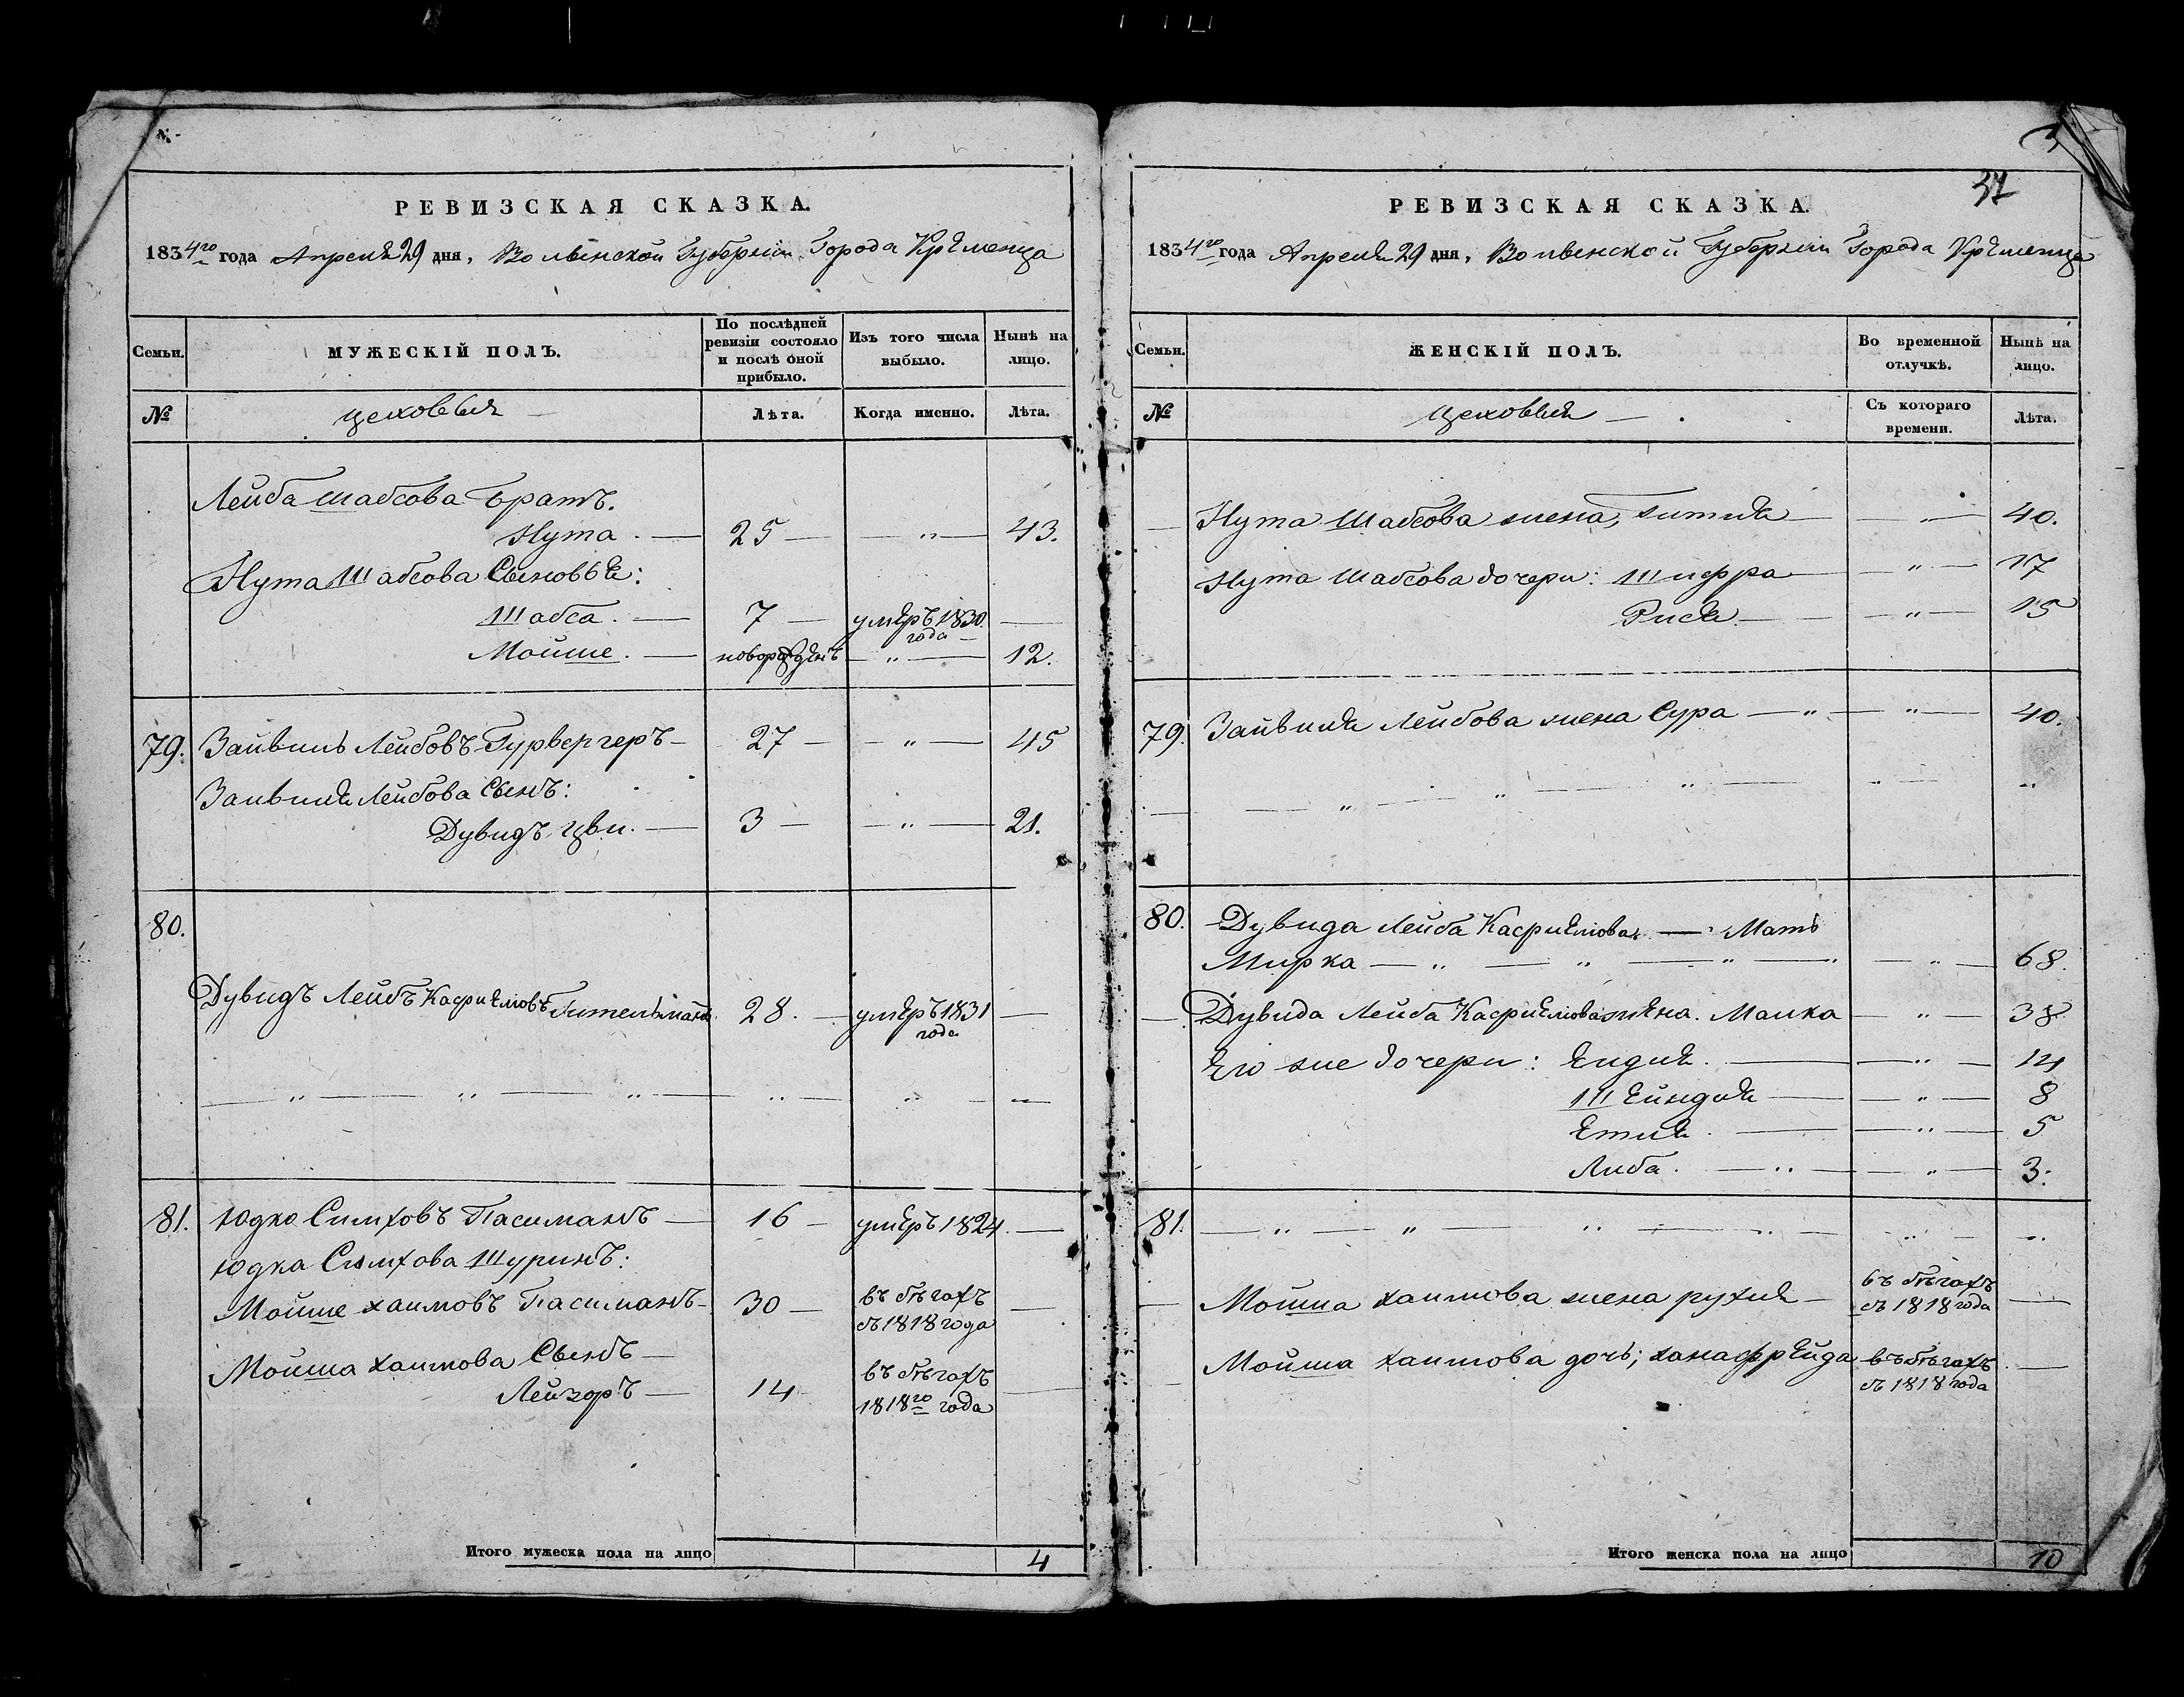 РЕВИЗСКАЯ СКАЗКА.
1834го года Апреля 29 дня, Волынской Губернiи Города Кременца
Семьи.
МУЖЕСКIЙ ПОЛЪ.
По послѣдней ревизiи состояло и послѣ оной прибыло.
Изъ того числа выбыло.
Нынѣ на лицо.
№
цеховыя —
Лѣта.
Когда именно.
Лѣта.
Лейба Шабсова Братъ.
Нута . — 25 — — „ — 43.
Нута Шабсова Сыновья:
Шабса . — 7 — умеръ 1830. года —
Мойше . — новорожденъ — „ — 12.
79. Зайвиль Лейбовъ Гурвергеръ — 27 — — „ — 45
Зайвиля Лейбова Сынъ:
Дувидъ Цви. — 3 — — „ — 21.
80.
Дувидъ Лейбъ Касриеловъ Гительманъ 28. — умеръ 1831 года —
— „ — „ — „ — „ — „ — „
81. Юдко Симховъ Пасиманъ — 16 — умеръ 1824. —
Юдка Симхова Шуринъ:
Мойше Хаимовъ Пасиманъ — 30 — въ бѣгахъ съ 1818 года —
Мойша Хаимова Сынъ —
Лейзоръ — 14 въ бѣгахъ 1818го года —
Итого мужеска пола на лицо 4
37
РЕВИЗСКАЯ СКАЗКА.
1834го года Апреля 29 дня, Волынской Губернiи Города Кременца
Семьи.
ЖЕНСКIЙ ПОЛЪ.
Во временной отлучкѣ.
Нынѣ на лицо.
№
цеховыя — .
Съ котораго времени.
Лѣта.
— Нута Шабсова жена, Гитля — — „ — 40.
Нута Шабсова дочери: Шифра — — „ — 17
Рися. — — „ — 15
79. Зайвиля Лейбова жена Сура — „ — — „ — 40.
— — „ — „ — „ — „ — „
80. Дувида Лейба Касриелова — Мать
Мирка — „ — „ — „ — „ — „ — 68.
— Дувида Лейба Касриелова жена. Малка — „ — 38
Его же дочери: Ендля. — — „ — 14
Шейндля — — „ — 8
Етля. — — „ — 5
Либа. — „ — — „ — 3.
81. — „ — „ — „ — „ — „ — „
— Мойша Хаимова жена Рухля — въ бѣгахъ съ 1818 года —
— Мойша Хаимова дочь; Ханафрейда въ бѣгахъ съ 1818 года —
Итого женска пола на лицо 10